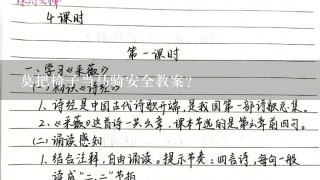 4课时
第一课时
一、学习《采薇》
莫把椅子当马骑安全教案?
1、诗经是中国古代诗歌开端,是我国第一部诗歌总集。
2、《采薇》这首诗一共六章,课本节选的是第六章前四句。
(二)诵读感知
1、结合注释,自由诵读。提示节奏:四言诗,每句一般
读成“二、二”节拍